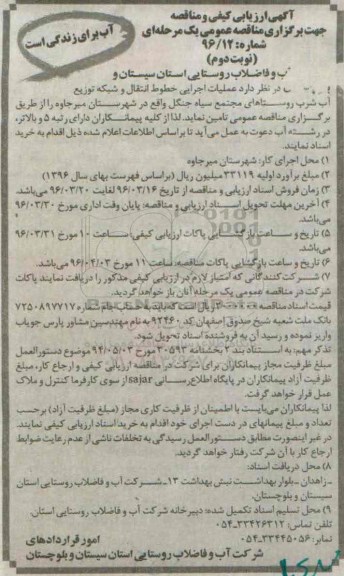 آگهی ارزیابی کیفی و مناقصه
جهت برگزاری مناقصه عمومی یک مرحله‌ای
شماره: ۹۶/۱۲
(نوبت دوم)
آب برای زندگی است
ب و فاضلاب روستایی استان سیستان و
در نظر دارد عملیات اجرایی خطوط انتقال و شبکه توزیع
آب شرب روستاهای مجتمع سیاه جنگل واقع در شهرستان میرجاوه را از طریق
برگزاری مناقصه عمومی تامین نماید. لذا از کلیه پیمانکاران دارای رتبه ۵ و بالاتر،
در رشته آب دعوت به عمل می‌آید تا براساس اطلاعات اعلام شده ذیل اقدام به خرید
اسناد نمایند.
۱) محل اجرای کار: شهرستان میرجاوه
۲) مبلغ برآورد اولیه ۳۳۱۱۹ میلیون ریال (براساس فهرست بهای سال ۱۳۹۶)
۳) زمان فروش اسناد ارزیابی و مناقصه از تاریخ ۹۶/۰۳/۱۶ لغایت ۹۶/۰۳/۲۰ می‌باشد.
۴) آخرین مهلت تحویل اسناد ارزیابی و مناقصه: پایان وقت اداری مورخ ۹۶/۰۳/۳۰
می‌باشد.
۵) تاریخ و ساعت بازگشایی پاکات ارزیابی کیفی: ساعت ۱۰ مورخ ۹۶/۰۳/۳۱
می‌باشد.
۶) تاریخ و ساعت بازگشایی پاکات مناقصه: ساعت ۱۱ مورخ ۹۶/۰۴/۰۳ می‌باشد.
۷) شرکت کنندگانی که امتیاز لازم در ارزیابی کیفی مذکور را دریافت نمایند پاکات
شرکت در مناقصه عمومی یک مرحله آنان باز خواهد گردید.
قیمت اسناد مناقصه ریال است که باید به حساب جام شماره ۷۲۵۰۸۹۷۷۱۷
بانک ملت شعبه شیخ صدوق اصفهان کد ۹۲۴۶۰ به نام مهندسین مشاور پارس جویاب
واریز نموده و رسید آن به فروشنده اسناد تحویل شود.
تذکر مهم: به استناد بند ۲ بخشنامه ۳۰۵۹۳ مورخ ۹۴/۰۵/۰۳ موضوع دستورالعمل
مبلغ ظرفیت مجاز پیمانکاران برای شرکت در مناقصه ارزیابی کیفی و ارجاع کار، مبلغ
ظرفیت آزاد پیمانکاران در پایگاه اطلاع‌رسانی sajar از سوی کارفرما کنترل و ملاک
عمل قرار خواهد گرفت.
لذا پیمانکاران می‌بایست با اطمینان از ظرفیت کاری مجاز (مبلغ ظرفیت آزاد) برحسب
تعداد و مبلغ پیمانهای در دست اجرای خود اقدام به خرید اسناد ارزیابی کیفی نمایند.
در غیر اینصورت مطابق دستورالعمل رسیدگی به تخلفات ناشی از عدم رعایت ضوابط
ارجاع کار با آن شرکت رفتار خواهد گردید.
۸) محل دریافت اسناد:
- زاهدان - بلوار بهداشت نبش بهداشت ۱۳ - شرکت آب و فاضلاب روستایی استان
سیستان و بلوچستان.
۹) محل تسلیم اسناد تکمیل شده: دبیرخانه شرکت آب و فاضلاب روستایی استان.
تلفن تماس: ۳۳۴۲۶۳۱۲-۰۵۴
نمابر: ۳۳۴۴۵۰۵۶-۰۵۴
امور قراردادهای
شرکت آب و فاضلاب روستایی استان سیستان و بلوچستان